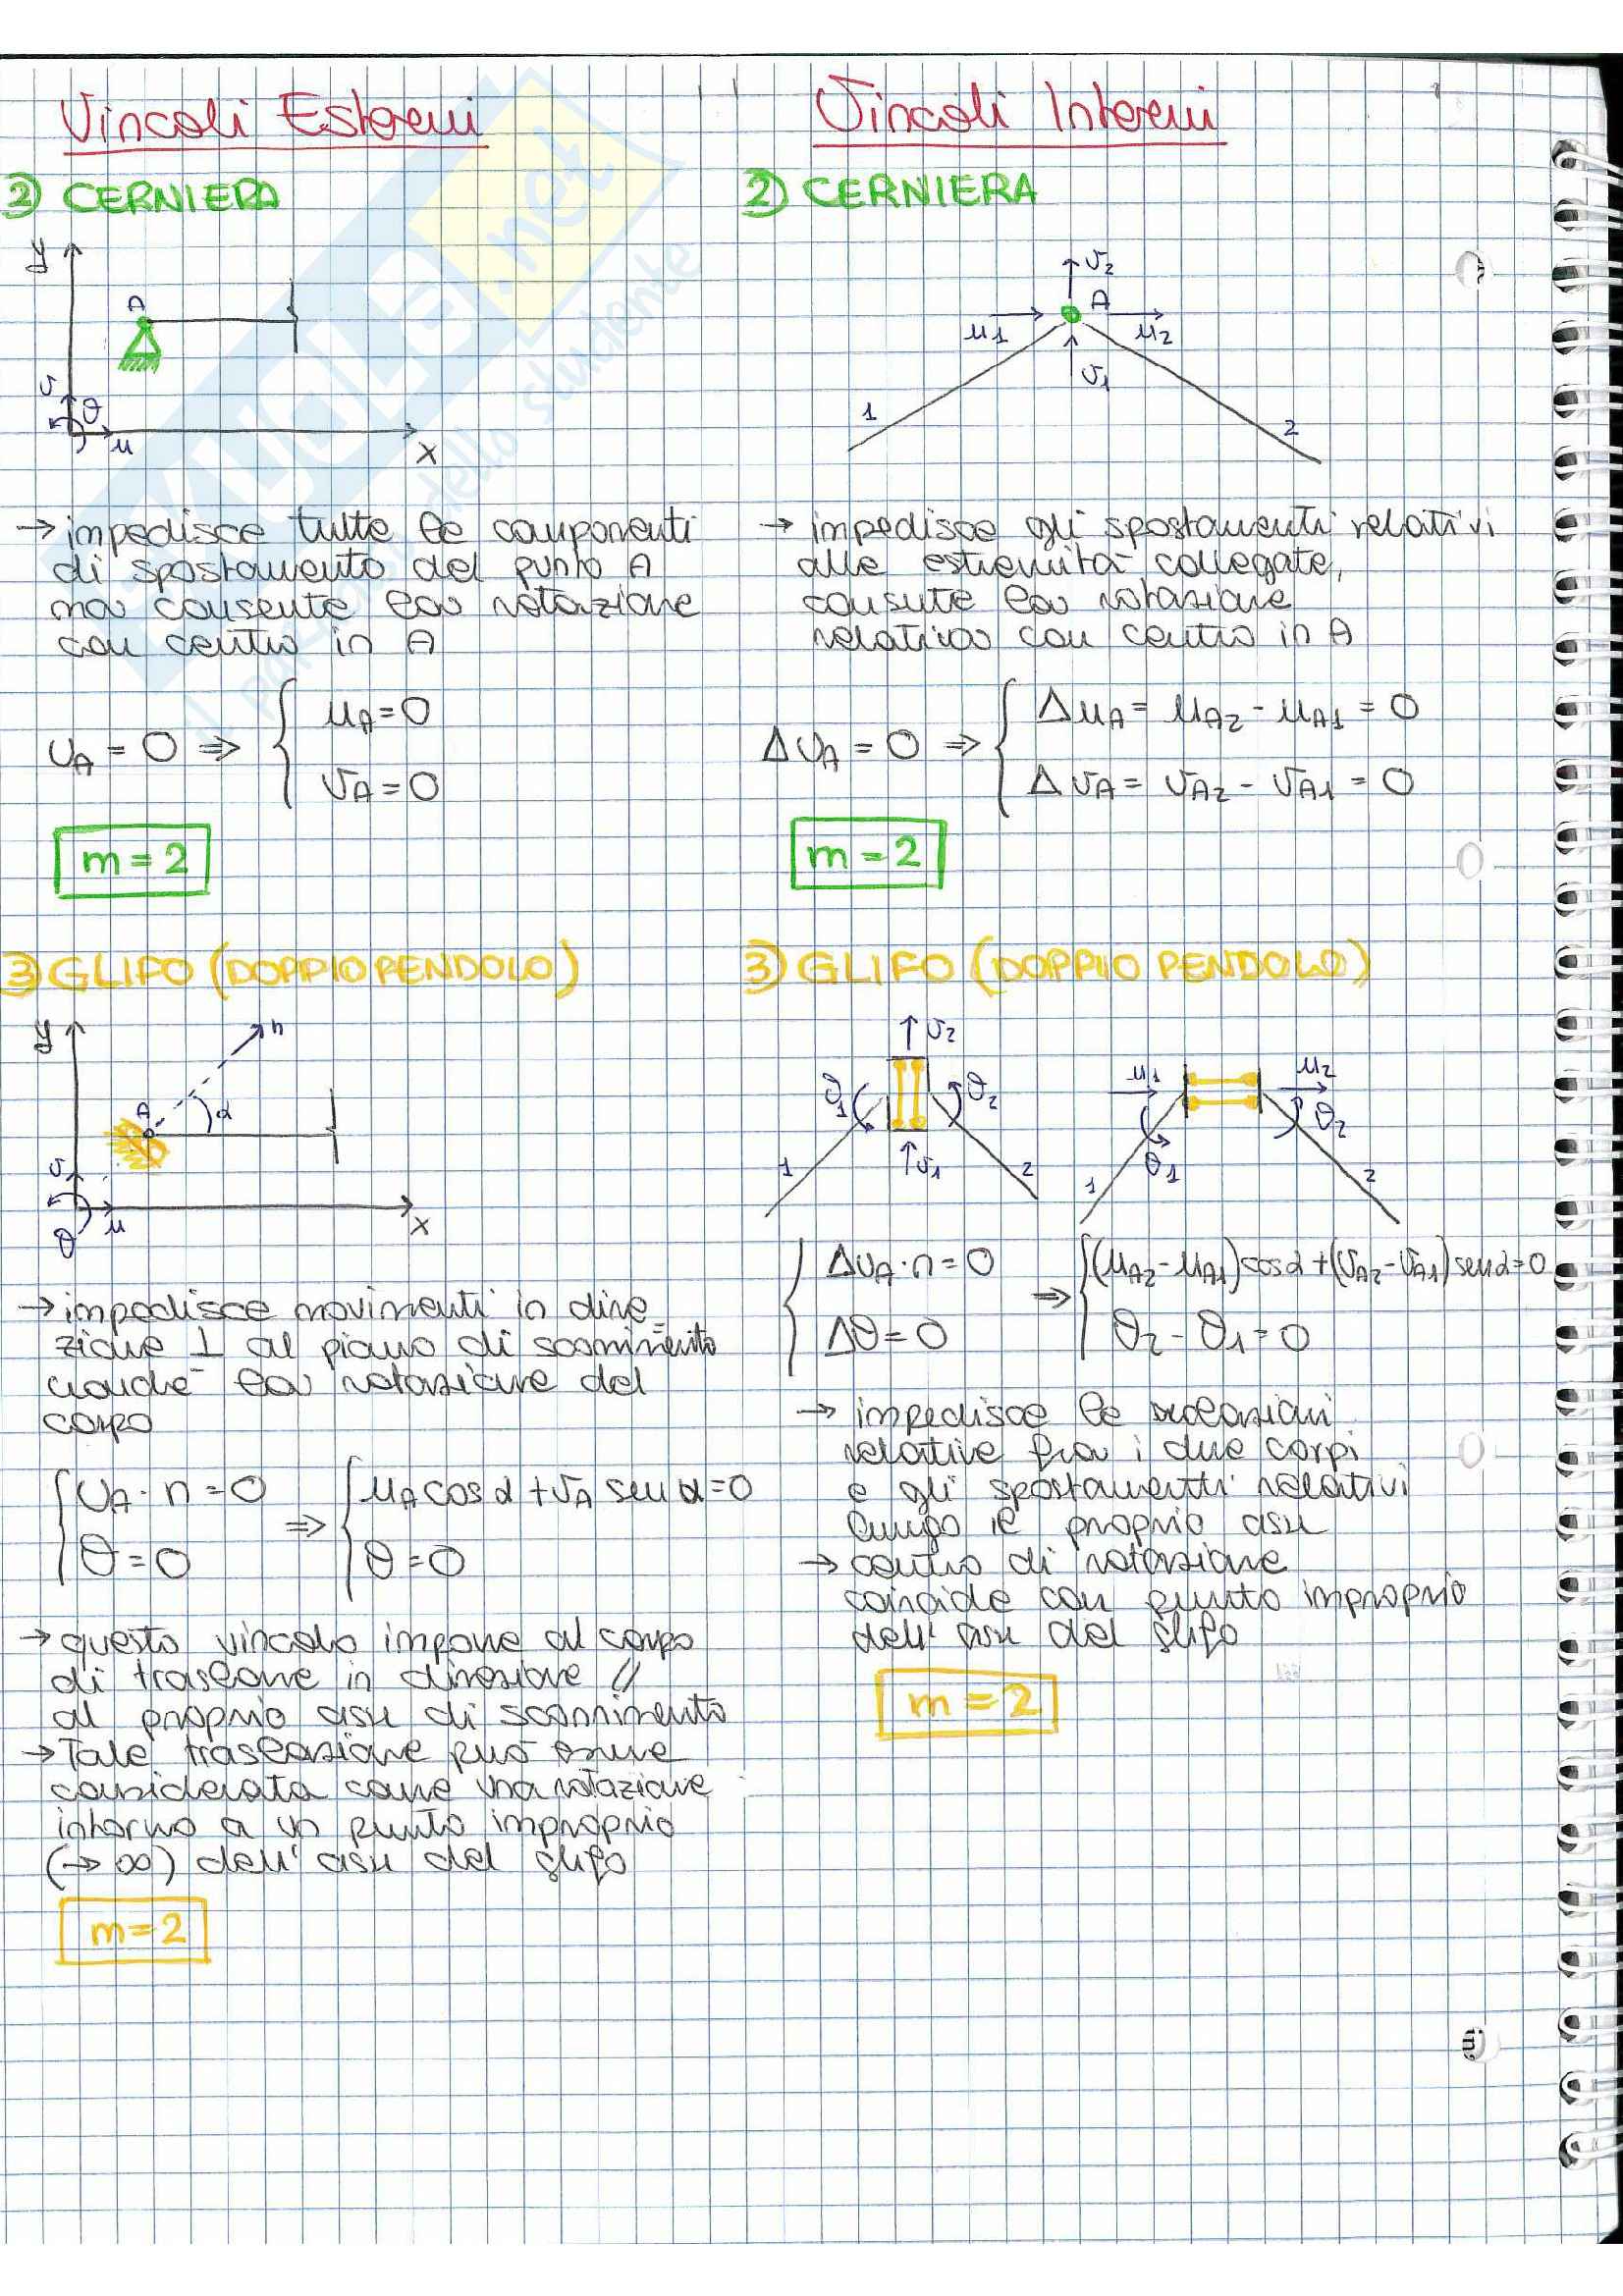 Vincoli Esterni
2) CERNIERA
y
A
v
θ
u
x
→ impedisce tutte le componenti
di spostamento del punto A
ma consente la rotazione
con centro in A
UA = 0 ⇒ { uA = 0
vA = 0
m = 2
3) GLIFO (DOPPIO PENDOLO)
y
n
A
α
v
u
x
θ
→ impedisce movimenti in dire_
zione ⊥ al piano di scorrimento
nonché la rotazione del
corpo
{ UA · n = 0
θ = 0
⇒ { uA cos α + vA sen α = 0
θ = 0
→ questo vincolo impone al corpo
di traslare in direzione //
al proprio asse di scorrimento
→ Tale traslazione può essere
considerata come una rotazione
intorno a un punto improprio
(→ ∞) dell' asse del glifo
m = 2
Vincoli Interni
2) CERNIERA
v2
A
u1
u2
v1
1
2
→ impedisce gli spostamenti relativi
alle estremità collegate,
consente la rotazione
relativa con centro in A
ΔUA = 0 ⇒ { ΔuA = uA2 - uA1 = 0
ΔvA = vA2 - vA1 = 0
m = 2
3) GLIFO (DOPPIO PENDOLO)
v2
θ1
θ2
v1
1
2
u1
u2
θ2
θ1
1
2
{ ΔUA · n = 0
Δθ = 0
⇒ { (uA2 - uA1) cos α + (vA2 - vA1) sen α = 0
θ2 - θ1 = 0
→ impedisce le
relative fra i due corpi
e gli spostamenti relativi
lungo il proprio asse
→ centro di rotazione
coincide con punto improprio
dell' asse del glifo
m = 2
.net
dello studente